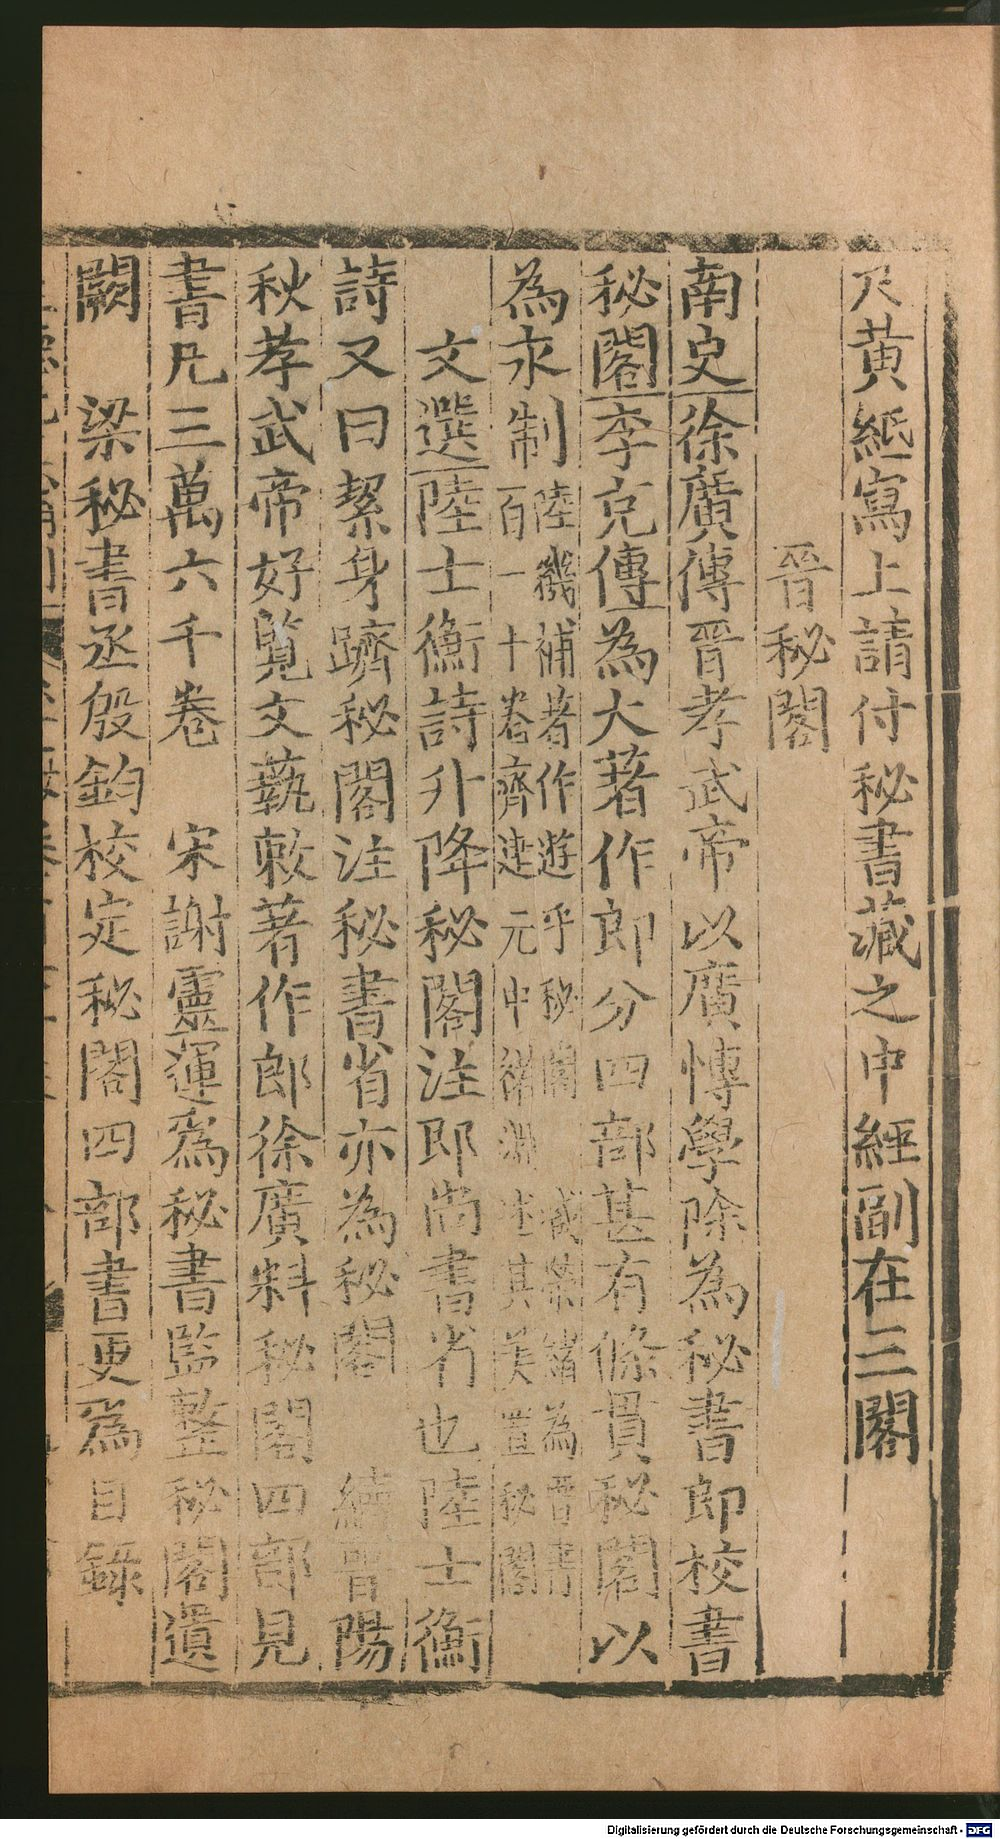 尺黄紙寫上請付秘書藏之中經副在三閣
晉秘閣
南史徐廣傳晉孝武帝以廣慱學除為秘書郎校書
秘閣李充傳為大著作郎分四部甚有條貫秘閣以
為永制陸機補著作遊乎秘閣 臧榮緒為晉書
百一十卷齊建元中褚淵述其美置秘閣
文選陸士衡詩升降秘閣注即尚書省也陸士衡
詩又曰絜身躋秘閣注秘書省亦為秘閣 續晉陽
秋孝武帝好覽文藝敕著作郎徐廣料秘閣四部見
書凡三萬六千卷 宋謝靈運爲秘書監整秘閣遺
闕 梁秘書丞殷鈞校定秘閣四部書更爲目錄
Digitalisierung gefördert durch die Deutsche Forschungsgemeinschaft - DFG